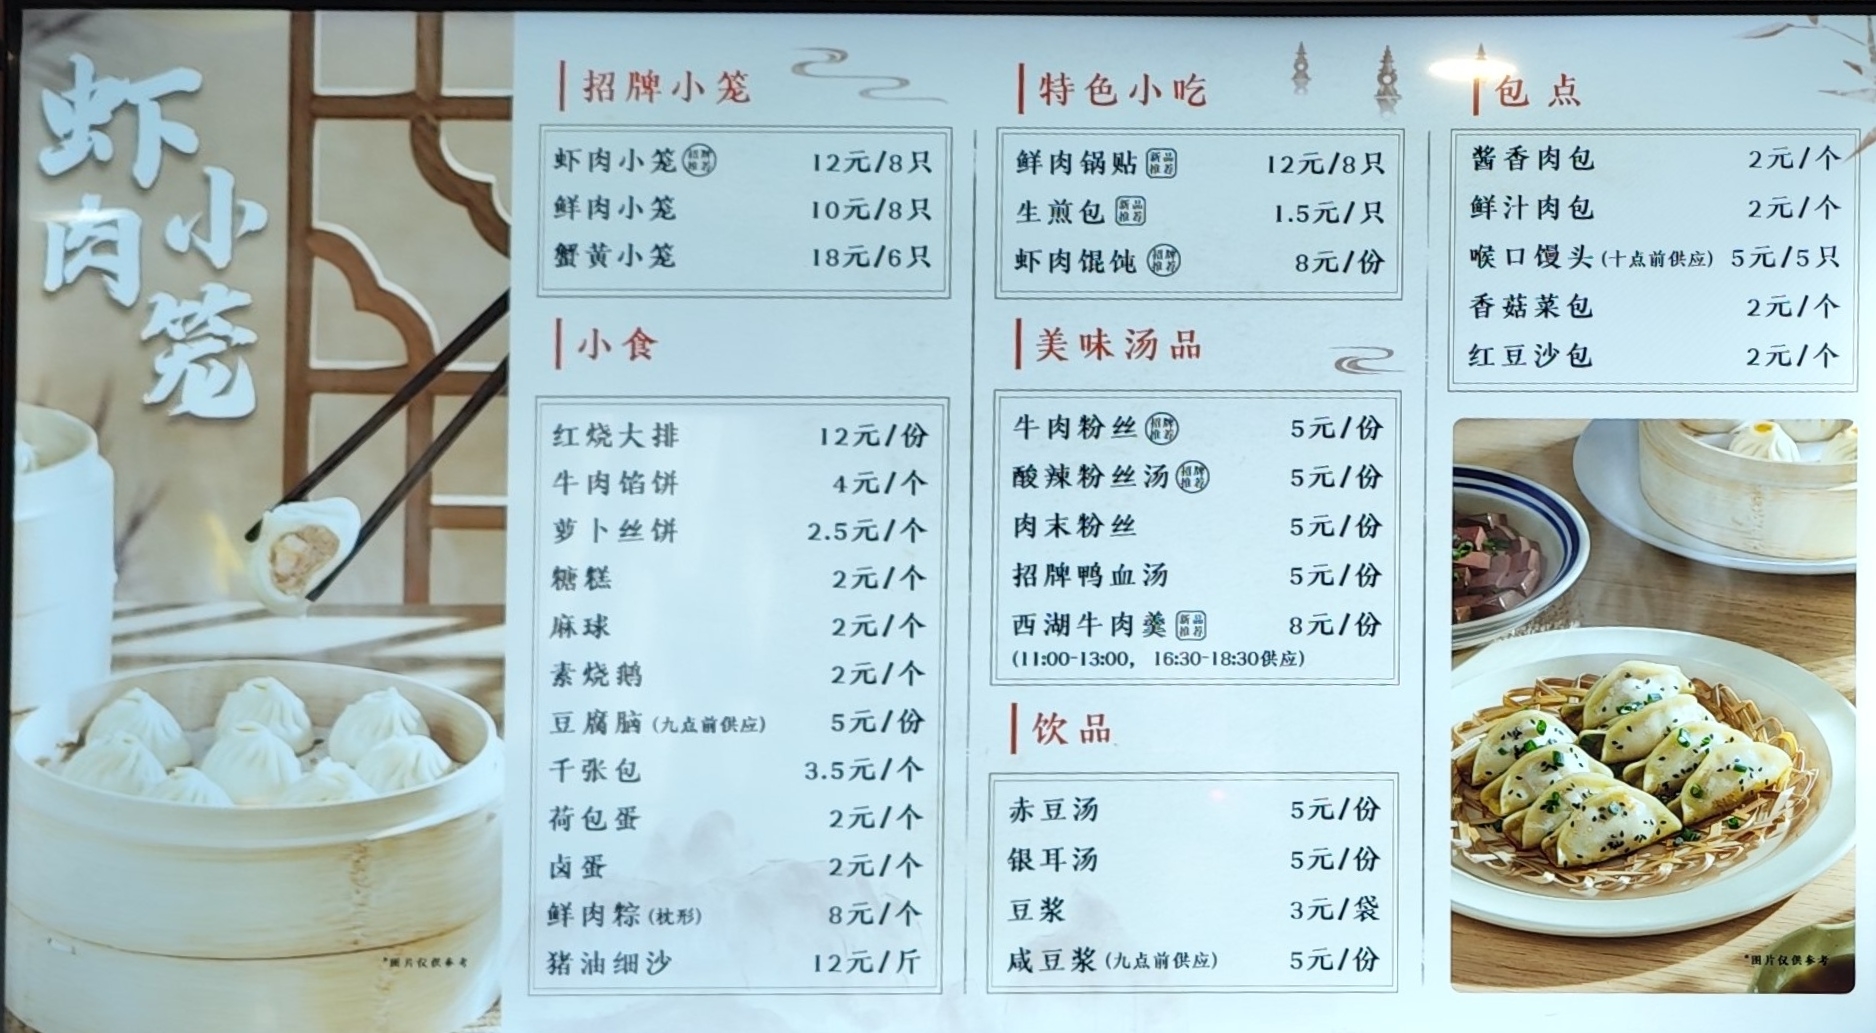 虾肉小笼
招牌小笼
虾肉小笼 招牌推荐 12元/8只
鲜肉小笼 10元/8只
蟹黄小笼 18元/6只
小食
红烧大排 12元/份
牛肉馅饼 4元/个
萝卜丝饼 2.5元/个
糖糕 2元/个
麻球 2元/个
素烧鹅 2元/个
豆腐脑(九点前供应) 5元/份
千张包 3.5元/个
荷包蛋 2元/个
卤蛋 2元/个
鲜肉粽(枕形) 8元/个
猪油细沙 12元/斤
特色小吃
鲜肉锅贴 新品推荐 12元/8只
生煎包 新品推荐 1.5元/只
虾肉馄饨 招牌推荐 8元/份
美味汤品
牛肉粉丝 招牌推荐 5元/份
酸辣粉丝汤 招牌推荐 5元/份
肉末粉丝 5元/份
招牌鸭血汤 5元/份
西湖牛肉羹 新品推荐 8元/份
(11:00-13:00, 16:30-18:30供应)
饮品
赤豆汤 5元/份
银耳汤 5元/份
豆浆 3元/袋
咸豆浆(九点前供应) 5元/份
包点
酱香肉包 2元/个
鲜汁肉包 2元/个
喉口馒头(十点前供应) 5元/5只
香菇菜包 2元/个
红豆沙包 2元/个
*图片仅供参考
*图片仅供参考